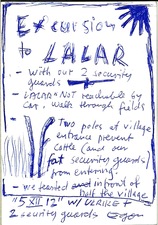 Excursion
to LALAR
- with our 2 security
guards
- LALAR NOT reachable by
car, walk through fields
Two poles at village
entrance prevent
cattle (and our
fat security guards)
from entering.
- we parked in front of
half the village
"5 XII 12" w/ ULRIKE +
2 security guards